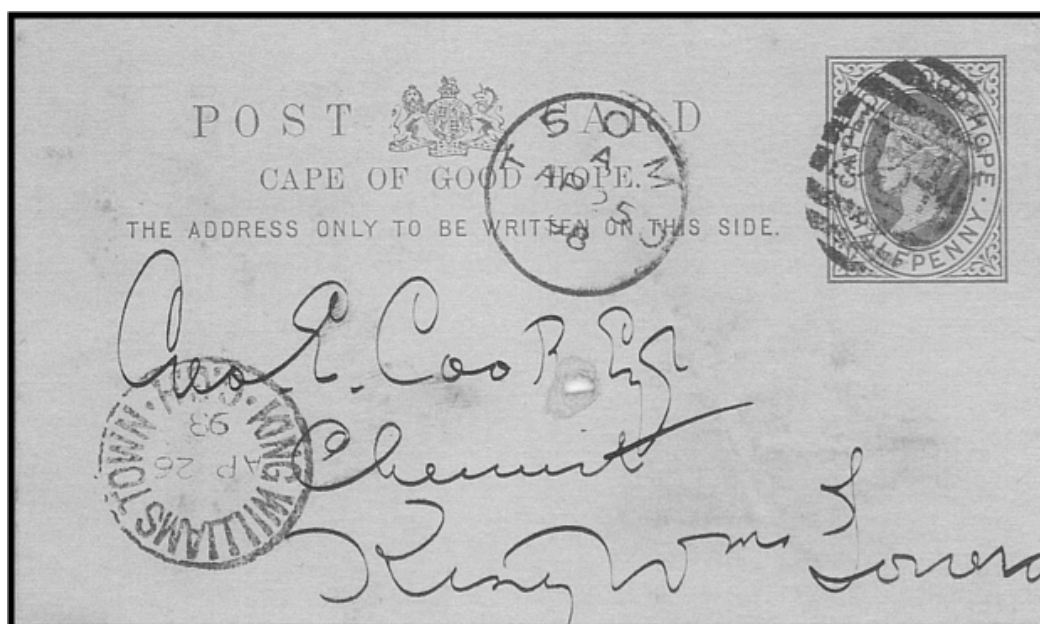 POST CARD
CAPE OF GOOD HOPE.
THE ADDRESS ONLY TO BE WRITTEN ON THIS SIDE.
CAPE OF GOOD HOPE
HALFPENNY
TSOMO
A
AP 25
93
Geo E. Cook Esq
Chemist
King Wm Town
KING WILLIAMS TOWN
AP 26
93